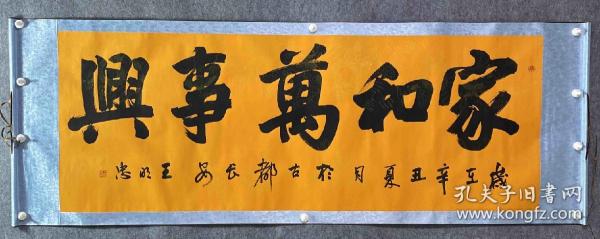 家和萬事興
歲在辛丑夏月於古都長安 王明忠
孔夫子旧书网
www.kongfz.com